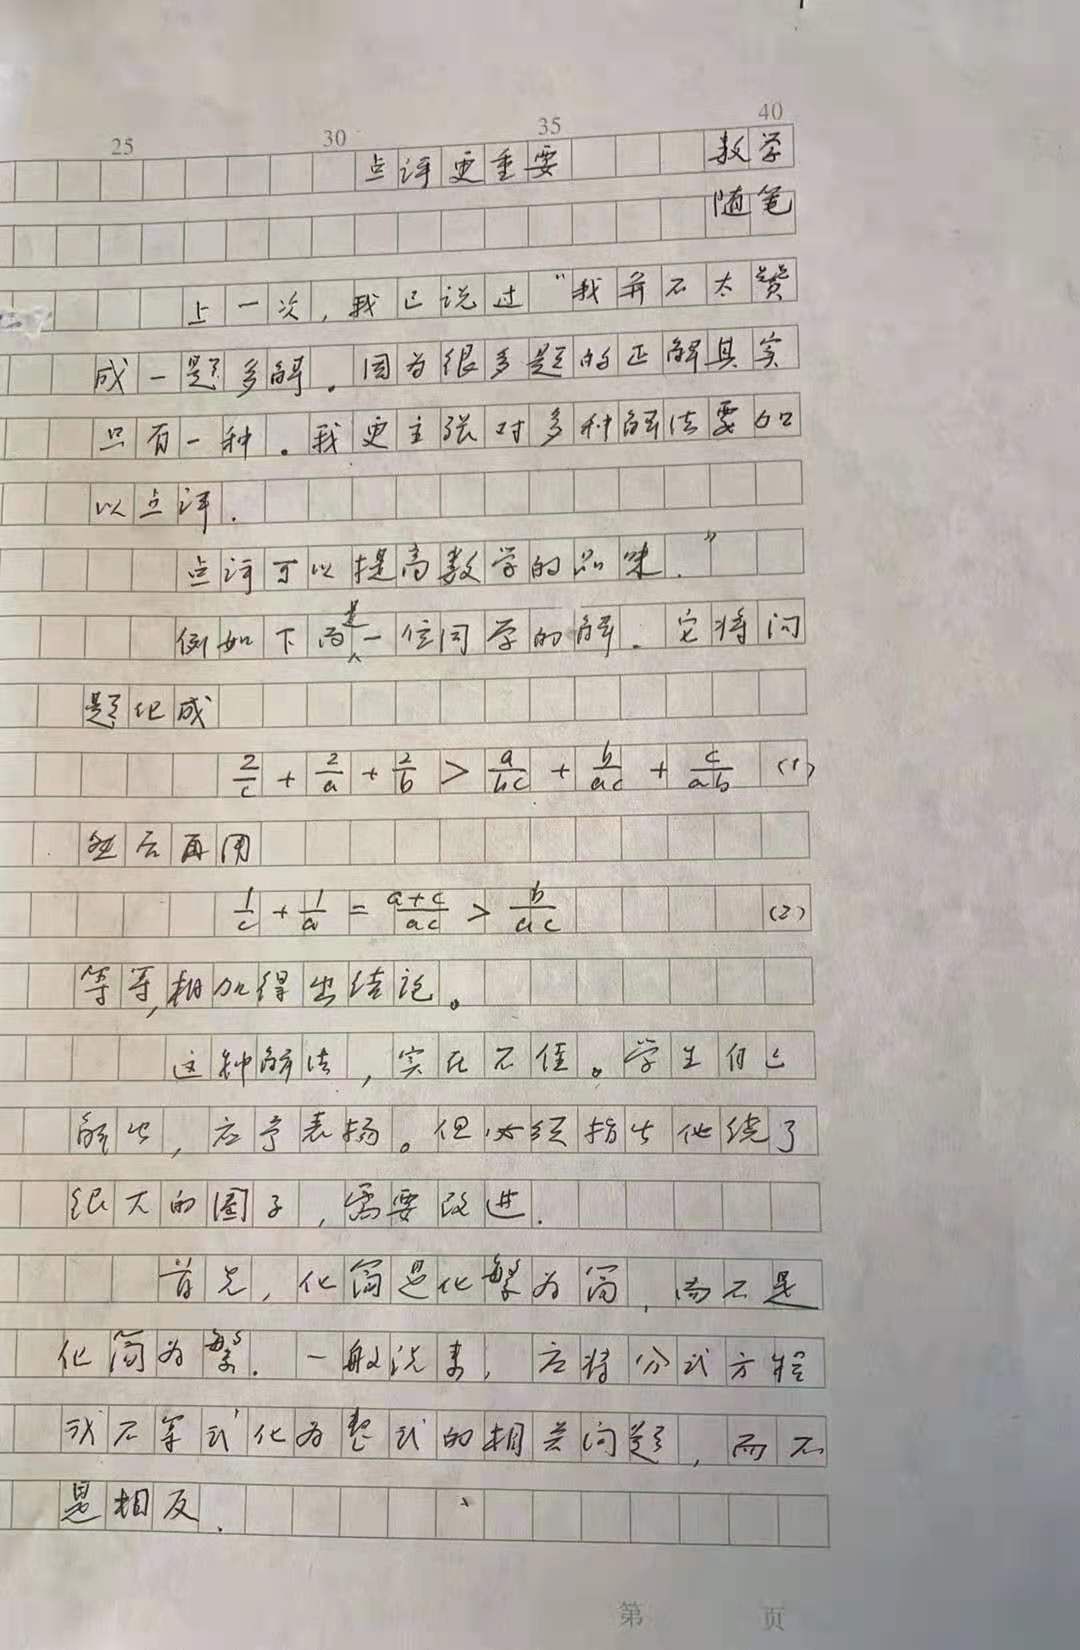 25 30 35 40
点评更重要 教学
随笔
上一次，我已说过“我并不太赞
成一题多解。因为很多题的正解其实
只有一种。我更主张对多种解法要加
以点评.
点评可以提高数学的品味.”
例如下面是一位同学的解. 它将问
题化成
2/c + 2/a + 2/b > a/bc + b/ac + c/ab (1)
然后再用
1/c + 1/a = a+c/ac > b/ac (2)
等等,相加得出结论。
这种解法，实在不佳。学生自己
解出，应予表扬。但必须指出他绕了
很大的圈子，需要改进.
首先，化简是化繁为简，而不是
化简为繁. 一般说来，应将分式方程
或不等式化为整式的相关问题，而不
是相反.
第 页